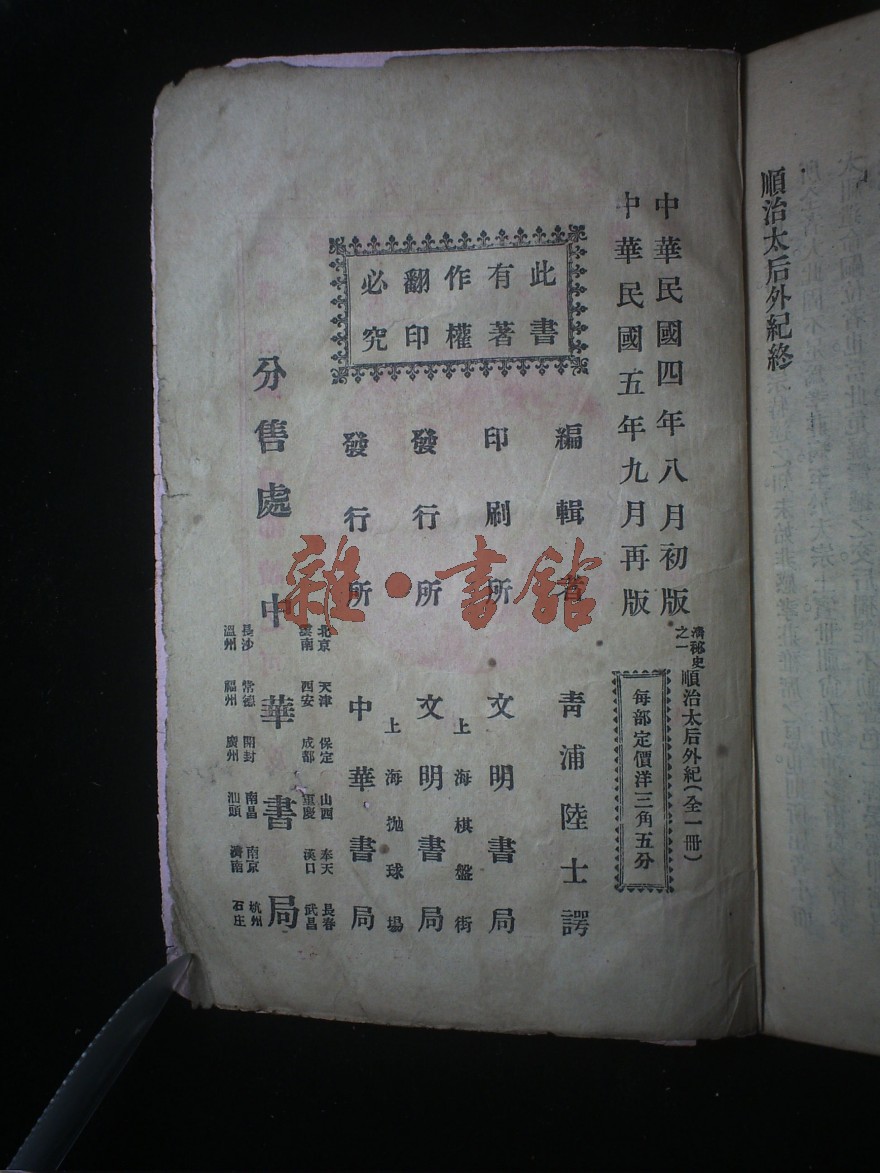 順治太后外紀終
中華民國四年八月初版
中華民國五年九月再版
清秘史之一
順治太后外紀(全一冊)
每部定價洋三角五分
此書
有著
作權
翻印
必究
編輯者 青浦陸士諤
印刷所 文明書局
上海棋盤街
發行所 文明書局
上海拋球場
發行所 中華書局
分售處 中華書局
北京 天津 保定 山西 奉天 長春
雲南 西安 成都 重慶 漢口 武昌
長沙 常德 開封 南昌 南京 杭州
溫州 福州 廣州 汕頭 濟南 石庄
雜·書館